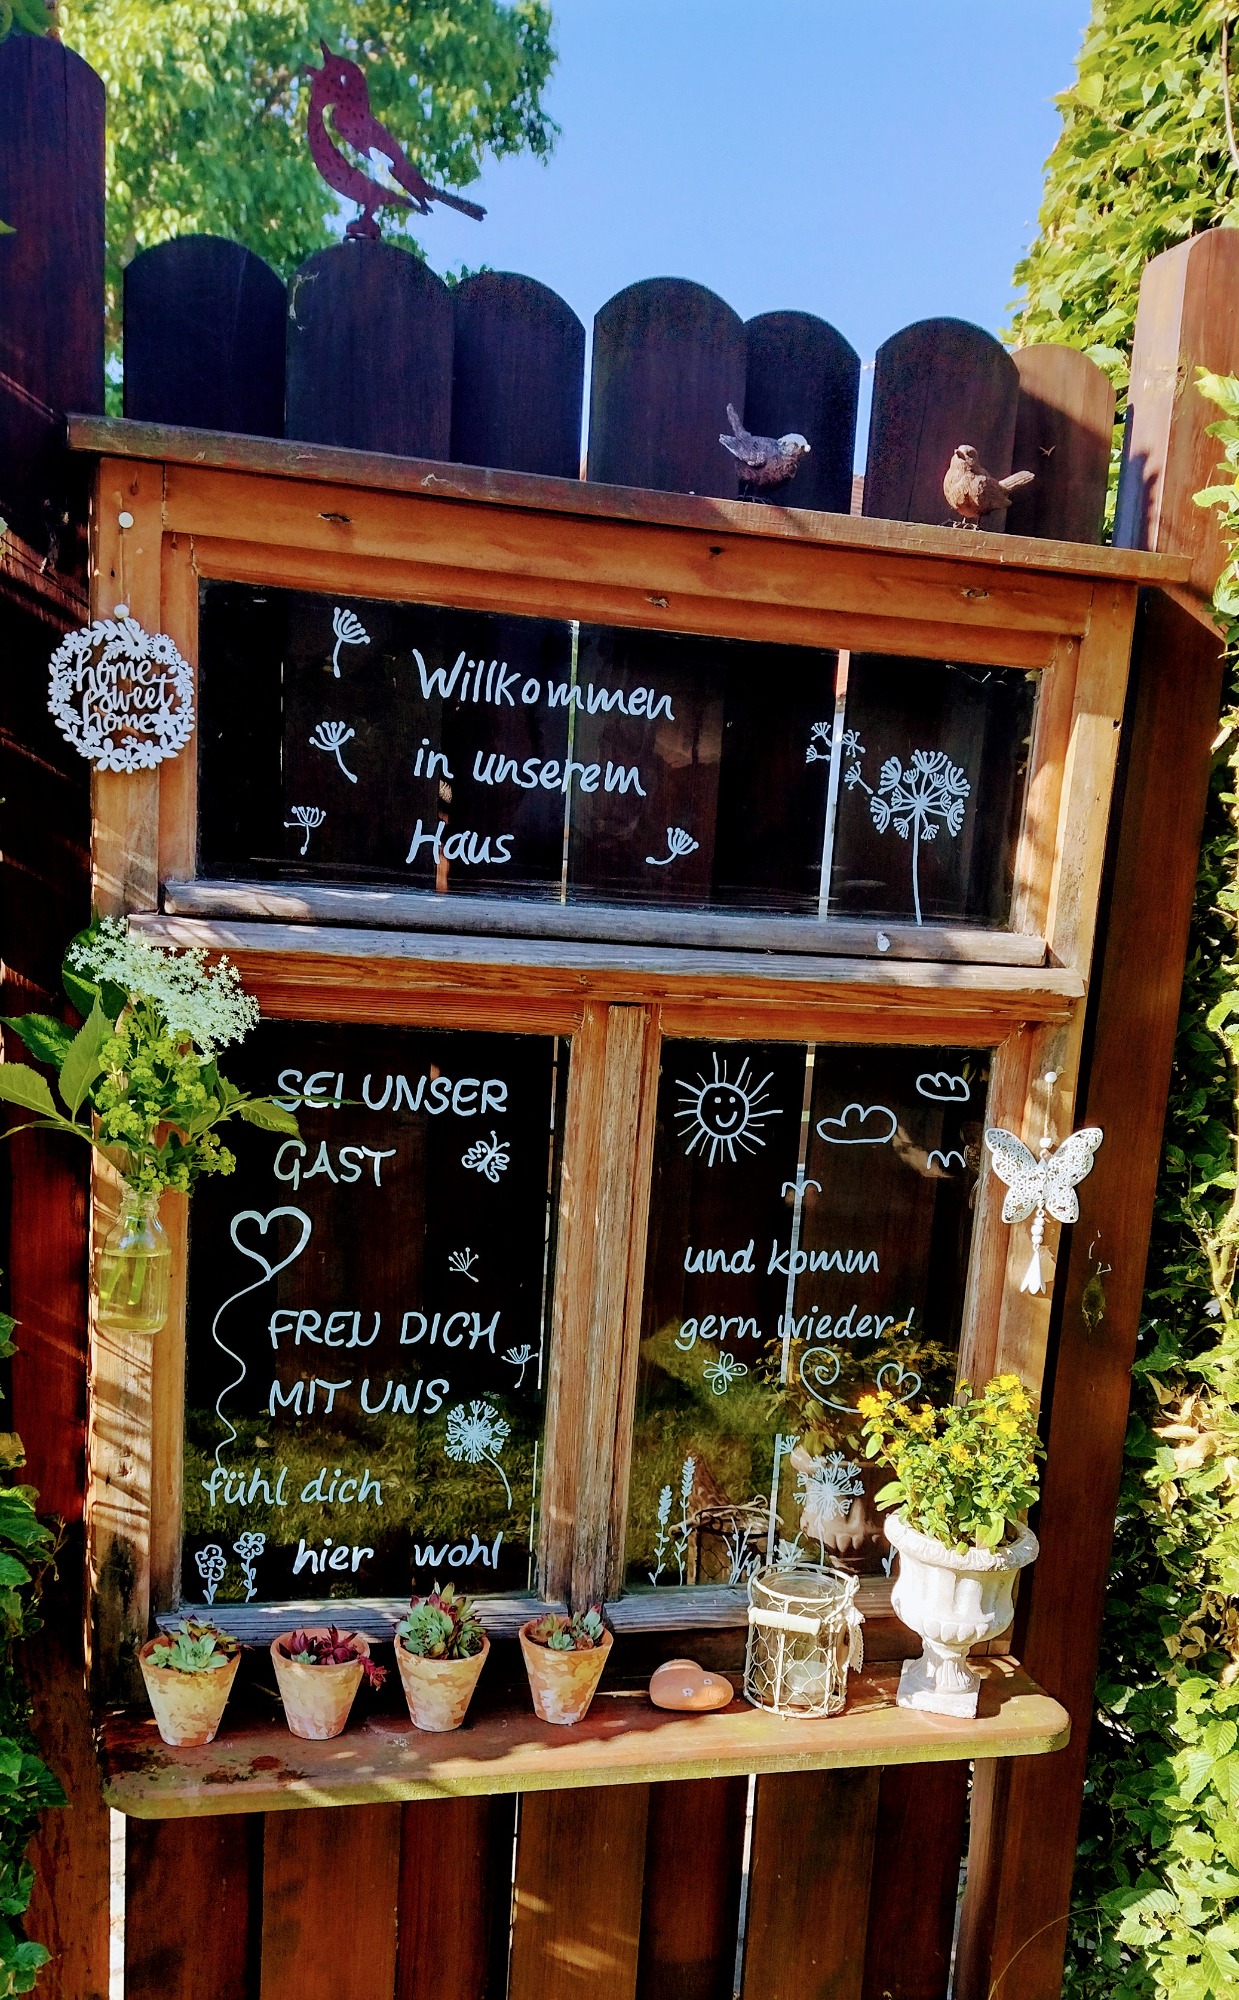 home
sweet
home
Willkommen
in unserem
Haus
SEI UNSER
GAST
FREU DICH
MIT UNS
fühl dich
hier wohl
und komm
gern wieder!